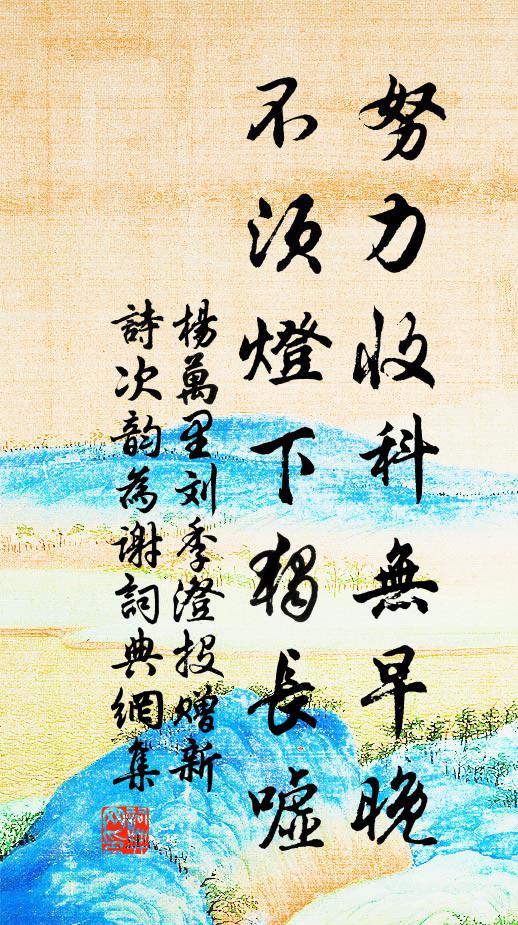 努力收科無早晚
不須燈下獨長噓
楊萬里刘季澄投贈新
詩次韵為謝詞典網集